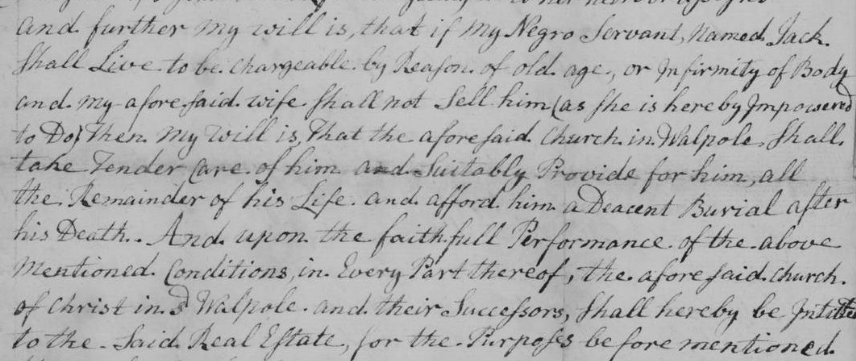 and further my will is, that if my Negro Servant, Named Jack.
Shall Live to be Chargeable by Reason of old age, or Infirmity of Body
and my aforesaid wife Shall not Sell him (as She is hereby Impowered
to Do) Then my will is, That the aforesaid Church in Walpole, Shall
take Tender Care of him and Suitably Provide for him, all
the Remainder of his Life and afford him a Deacent Burial after
his Death. And upon the faithfull Performance of the above
Mentioned Conditions, in Every Part thereof, the aforesaid Church
of Christ in sd Walpole and their Successors, Shall hereby be
to the Said Real Estate, for the Purposes before mentioned